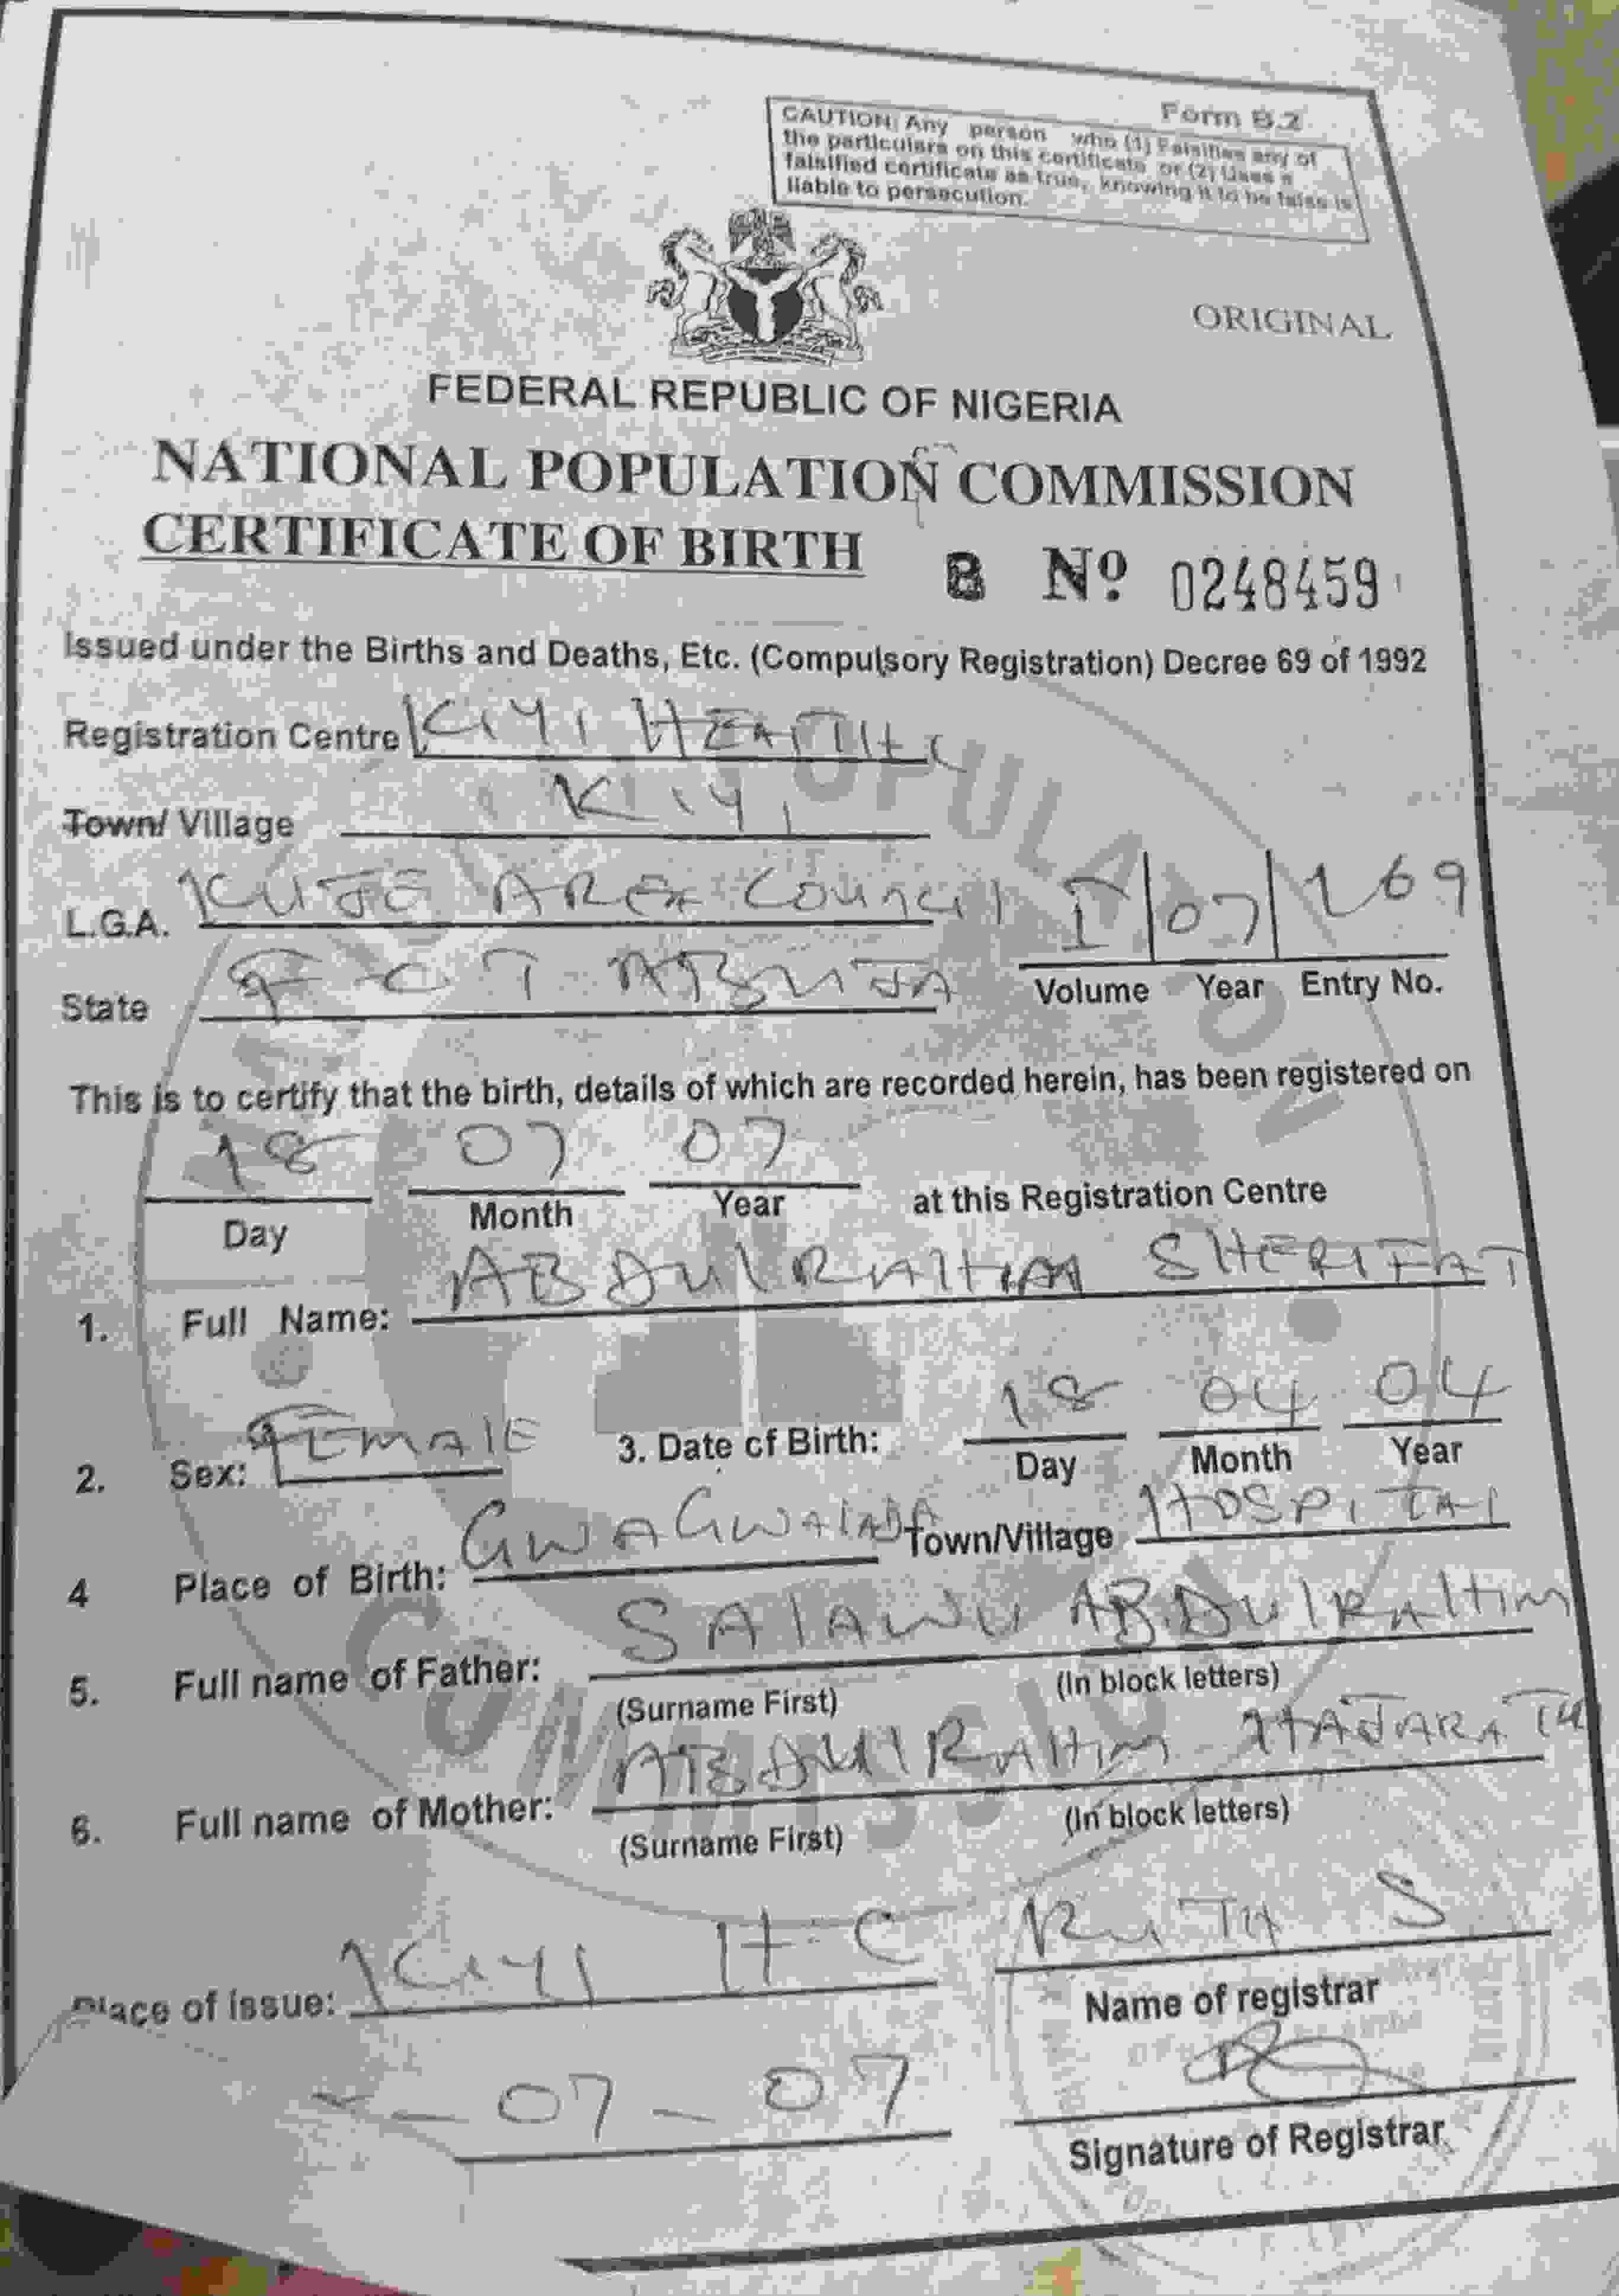 Form B.2
CAUTION: Any person who (1) Falsifies any of
the particulars on this certificate or (2) Uses a
falsified certificate as true, knowing it to be false is
liable to persecution.
ORIGINAL
FEDERAL REPUBLIC OF NIGERIA
NATIONAL POPULATION COMMISSION
CERTIFICATE OF BIRTH
B Nº 0248459
Issued under the Births and Deaths, Etc. (Compulsory Registration) Decree 69 of 1992
Registration Centre KIYI HEALTH C
Town/ Village KIYI
L.G.A. KUJE AREA COUNCIL I 07 169
State F C T ABUJA Volume Year Entry No.
This is to certify that the birth, details of which are recorded herein, has been registered on
18 07 07
Day Month Year at this Registration Centre
1. Full Name: ABDULRAHIM SHERIFAT
2. Sex: FEMALE 3. Date of Birth: 18 04 04
Day Month Year
4 Place of Birth: GWAGWALADA Town/Village HOSPITAL
5. Full name of Father: SALAWU ABDULRAHIM
(Surname First) (In block letters)
6. Full name of Mother: ABDULRAHIM HAJARATU
(Surname First) (In block letters)
Place of issue: KIYI H C RUTH S
Name of registrar
- 07 - 07
Signature of Registrar